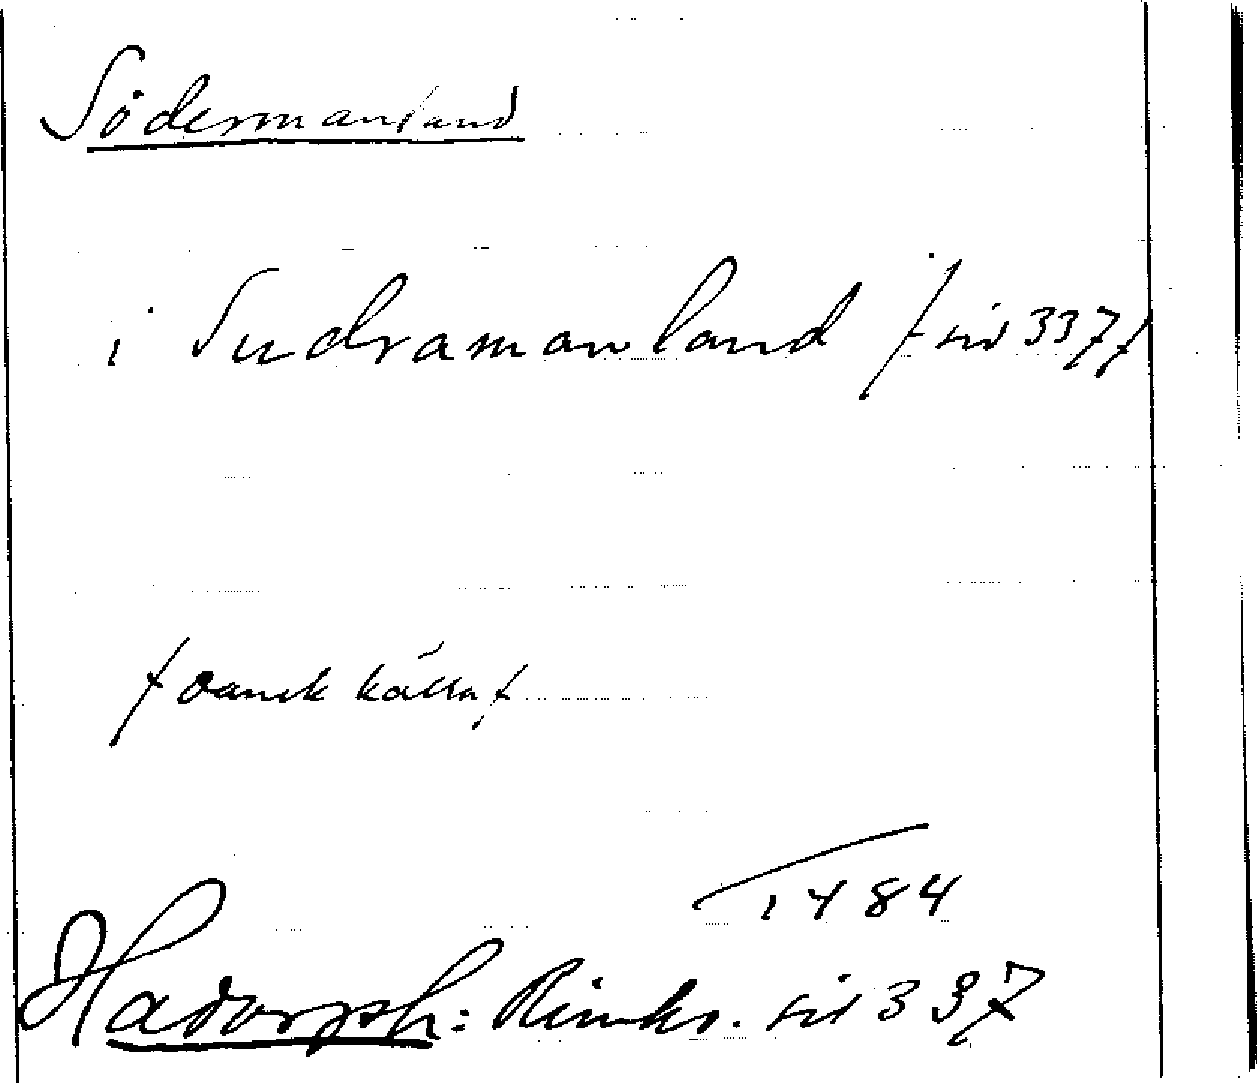 Södermanland
i Sudramanland / sid 337/
/ Dansk källa /
1484
Hadorph: Rimkr. sid 337